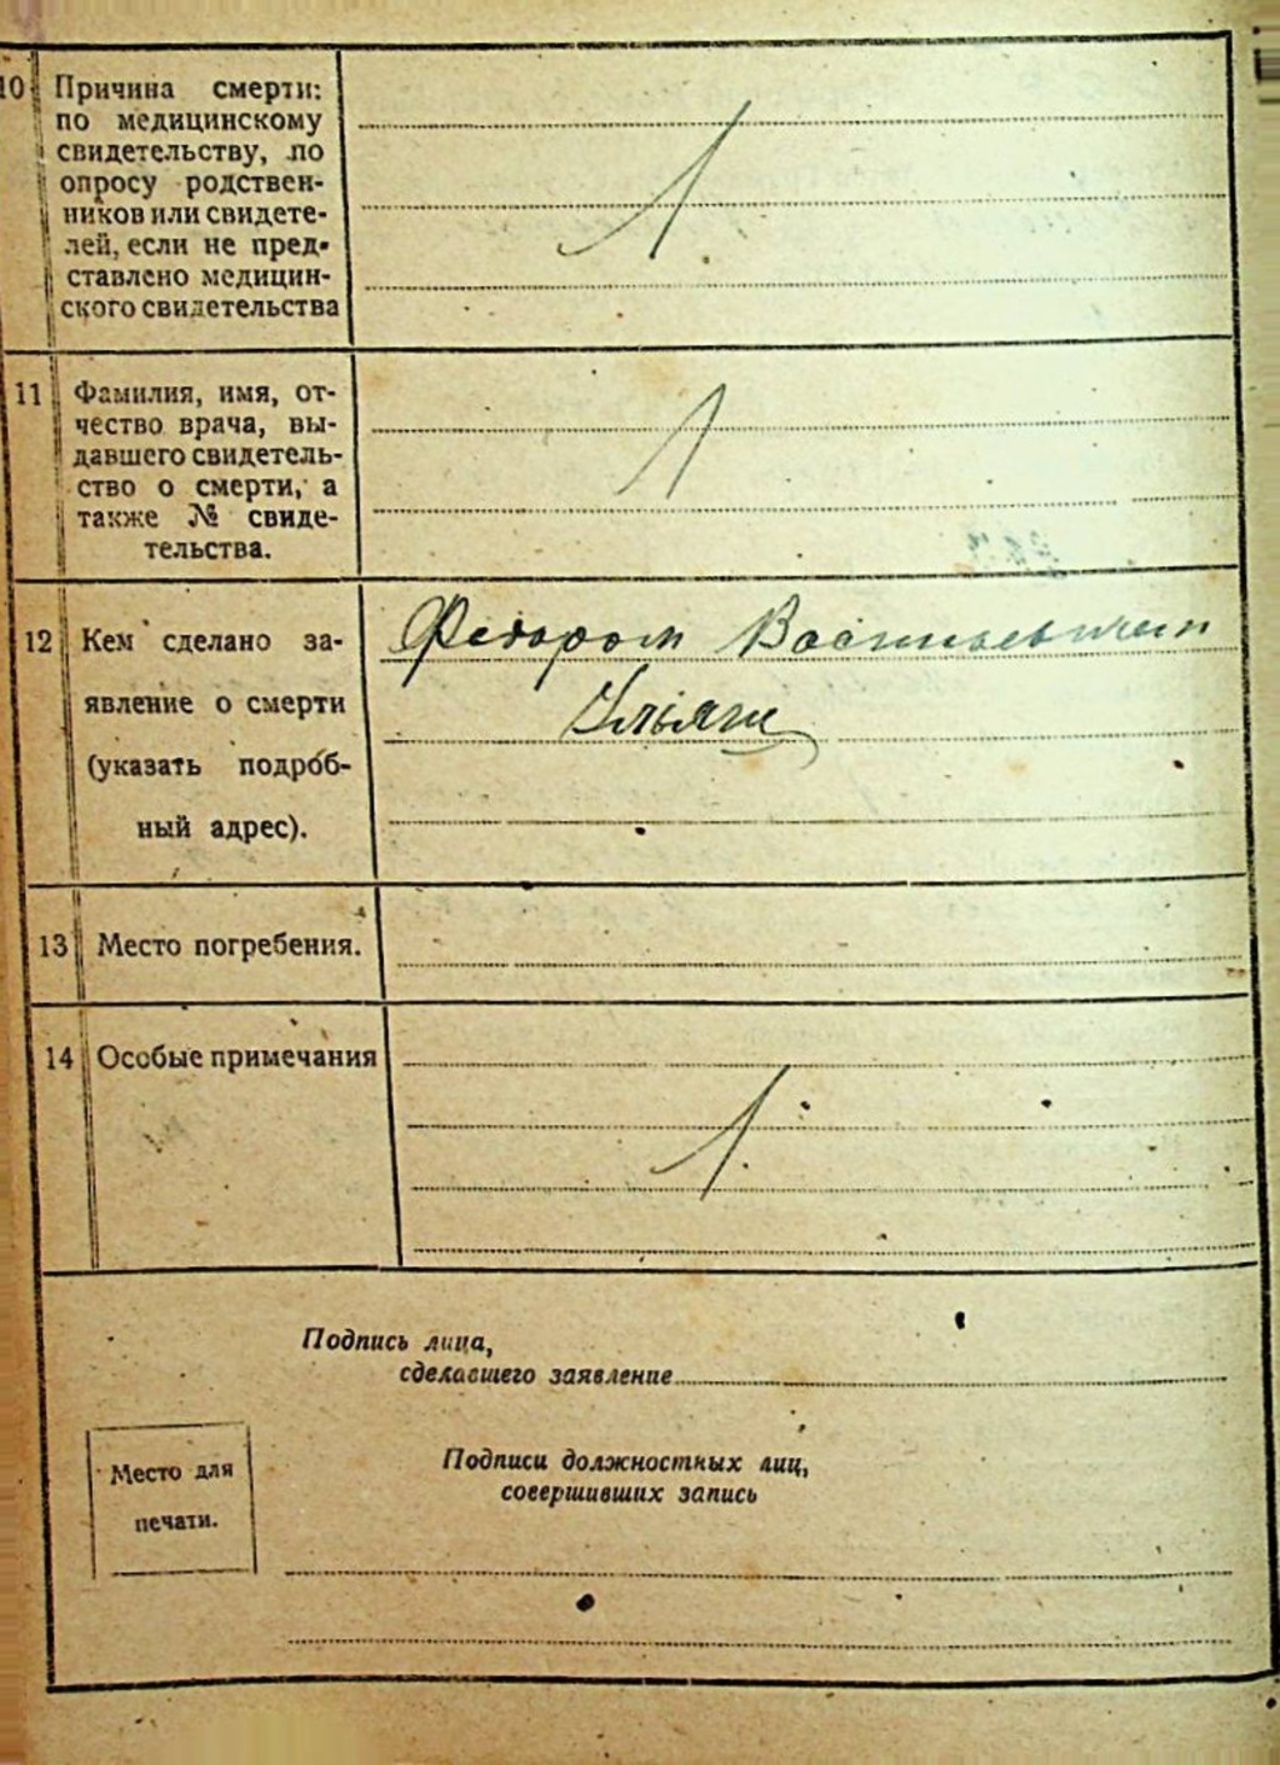 10 Причина смерти:
по медицинскому
свидетельству, по
опросу родствен-
ников или свидете-
лей, если не пред-
ставлено медицин-
ского свидетельства
11 Фамилия, имя, от-
чество врача, вы-
давшего свидетель-
ство о смерти, а
также № свиде-
тельства.
12 Кем сделано за-
явление о смерти
(указать подроб-
ный адрес).
Федором Васильевичем
13 Место погребения.
14 Особые примечания
Подпись лица,
сделавшего заявление
Место для
печати.
Подписи должностных лиц,
совершивших запись